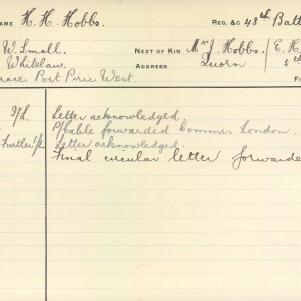 NAME H. H. Hobbs. REG. &C 43rd Batt
W. Small. NEXT OF KIN Mr J. Hobbs. E. H.
Whitelaw. ADDRESS Quorn 5th
race, Port Pirie West.
I/L. Letter acknowledged.
P/Cable forwarded Commrs London.
Further Letter acknowledged.
Final circular letter forwarde